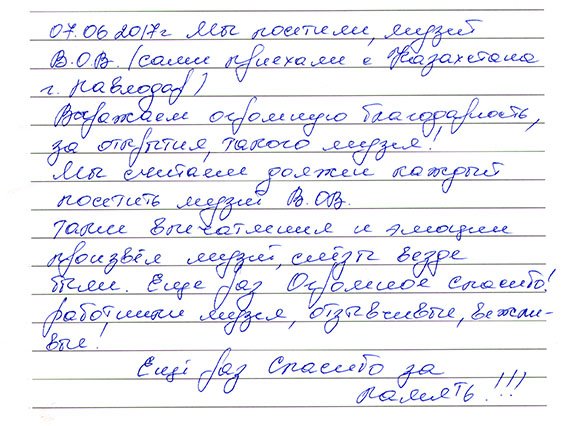 07.06 2017г Мы посетили, музей
В.О.В. (сами приехали с Казахстана
г. Павлодар)
Выражаем огромную благодарность,
за открытия, такого музея!
Мы считаем должен каждый
посетить музей В.ОВ.
такие впечатления и эмоции
произвёл музей, слёзы везде
были. Еще раз Огромное спасибо!
работники музея, отзывчивые, вежли-
вые!
Ещё раз Спасибо за
память!!!